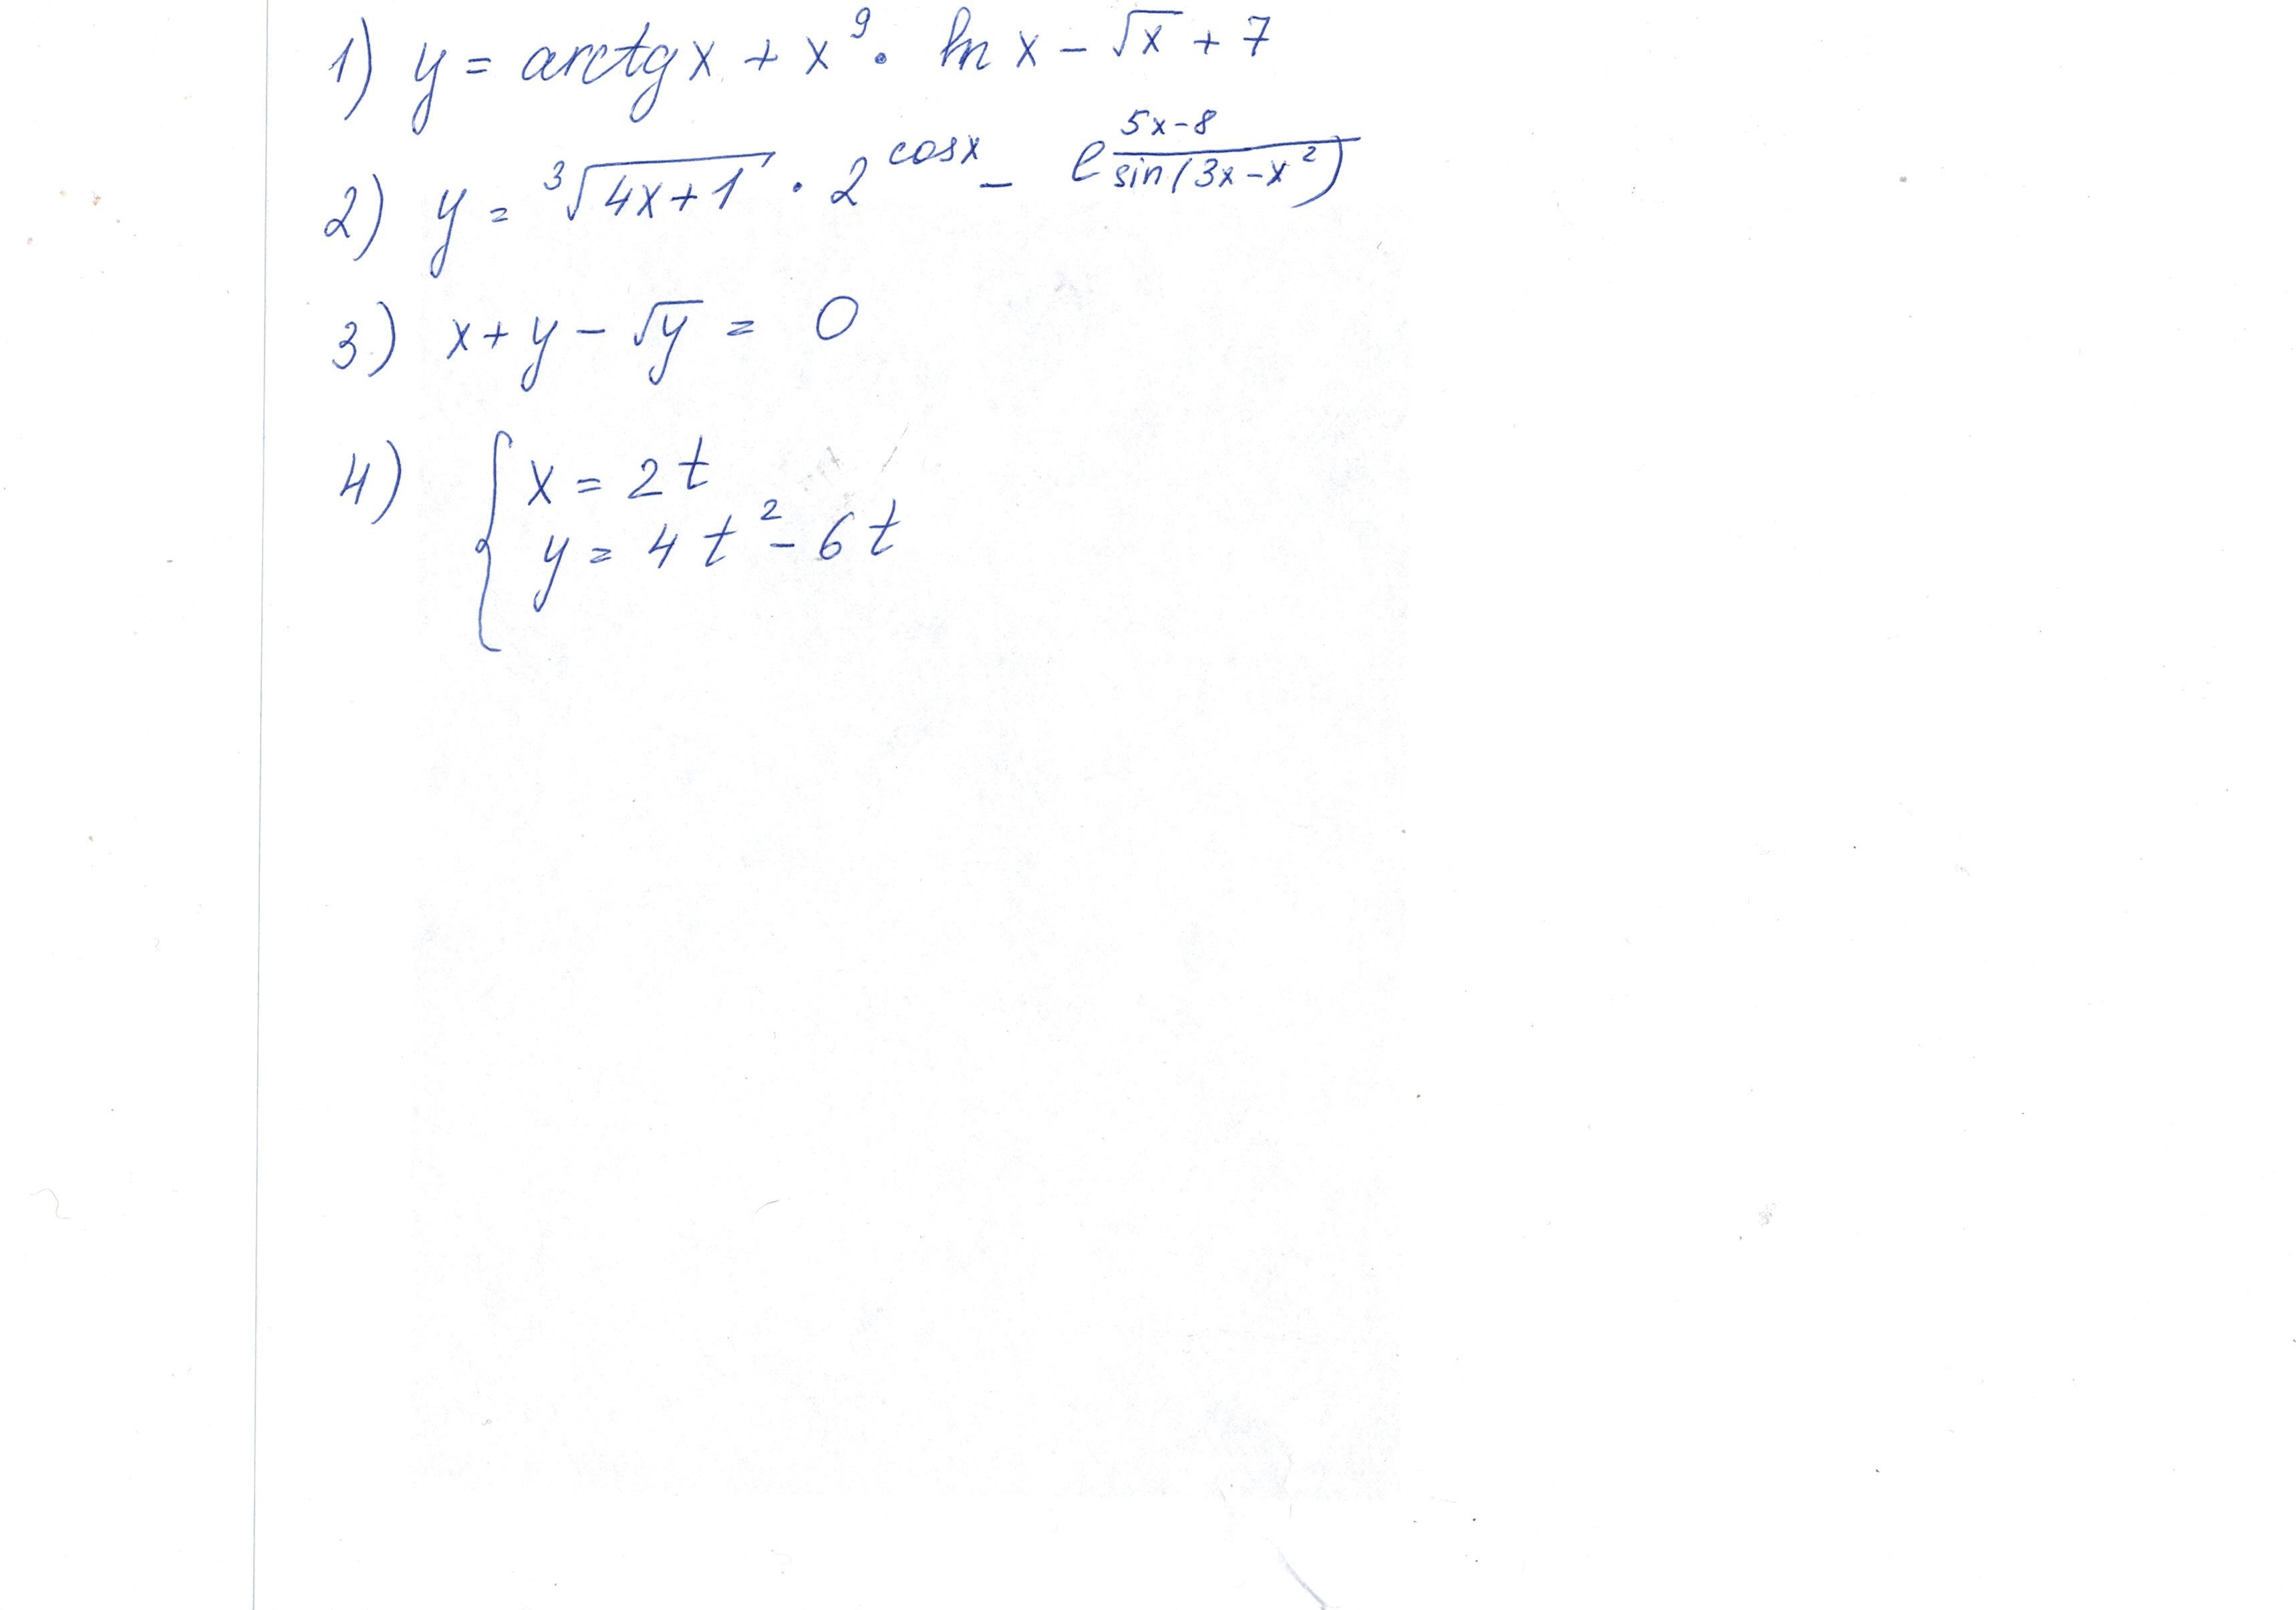 1) y = arctg x + x⁹ · ln x − √x + 7
2) y = ∛(4x+1) · 2^(cos x) − e^((5x−8)/(sin(3x−x²)))
3) x + y − √y = 0
4) { x = 2t
y = 4t² − 6t